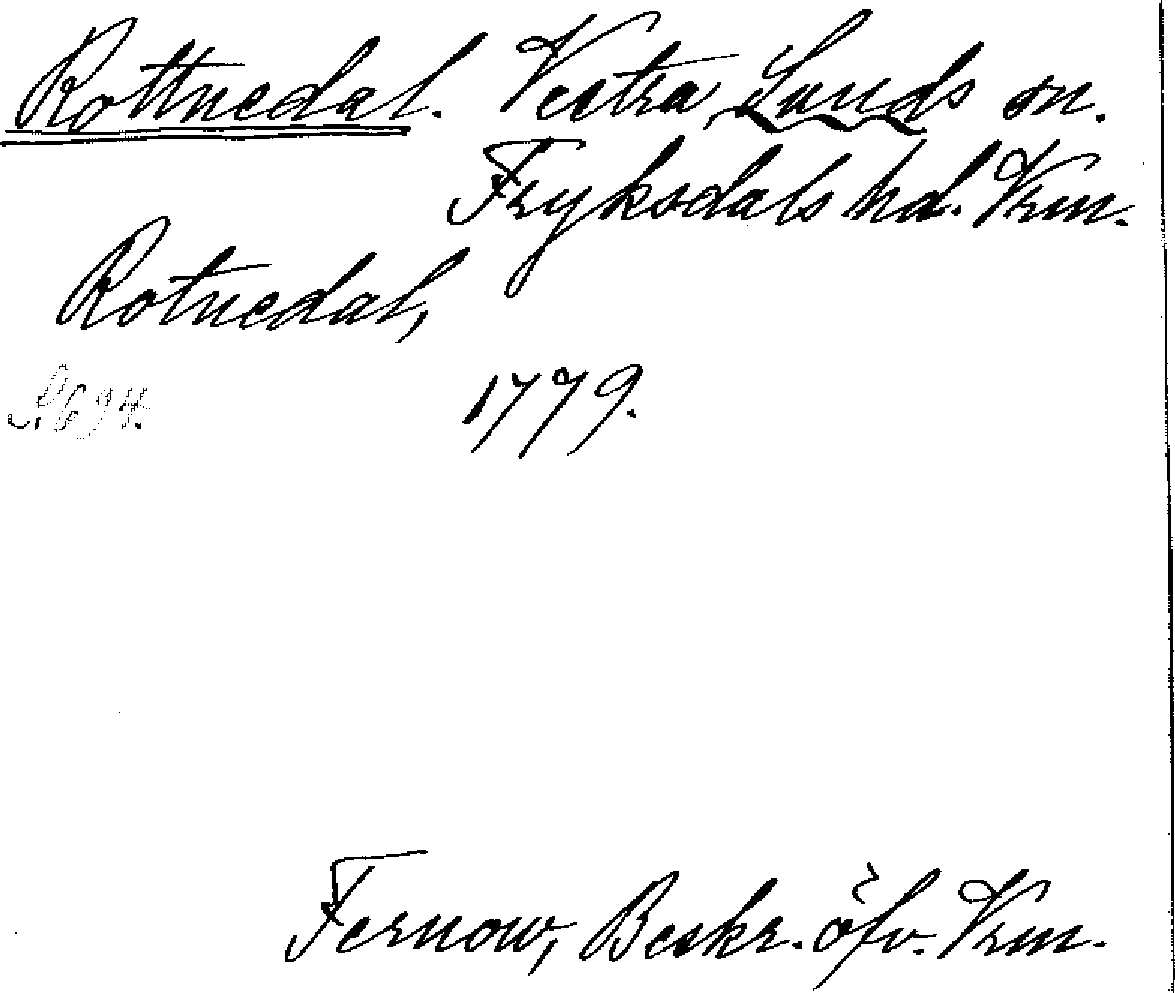 Rottnedal. Vestra Sunds sn.
Fryksdals hd. Vrm.
Rotnedal,
1779.
Fernow, Beskr. öfv. Vrm.